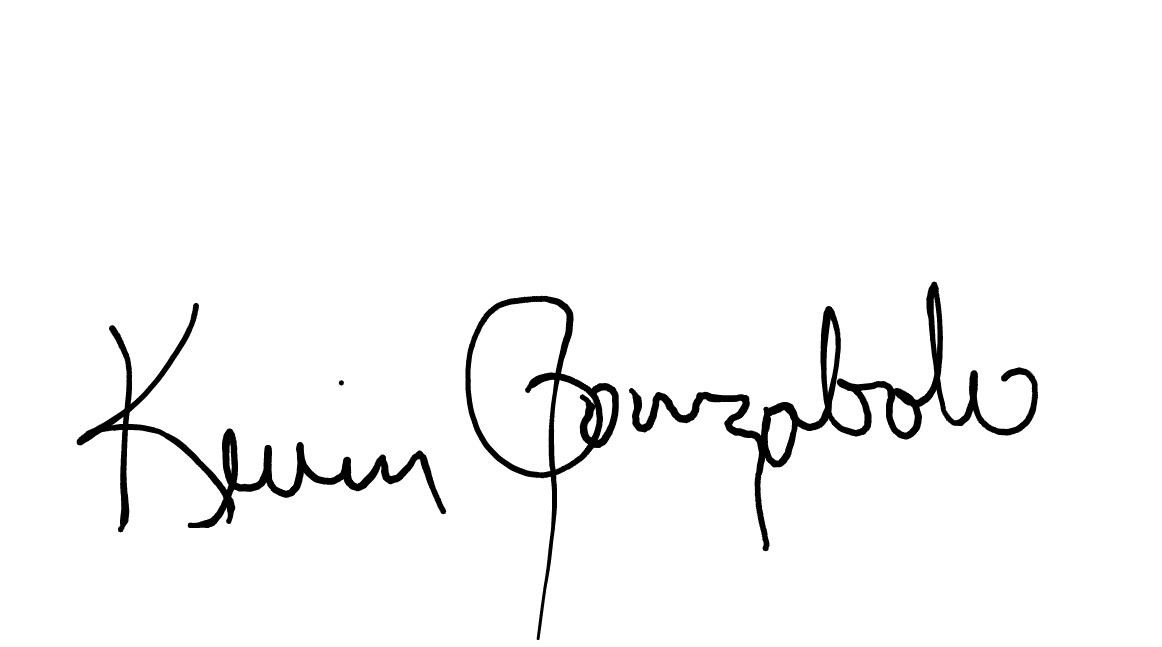 Kevin Gonzabolo